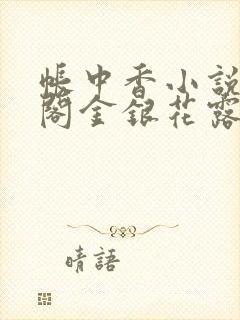 帳中香小說
閣金銀花露
晴語